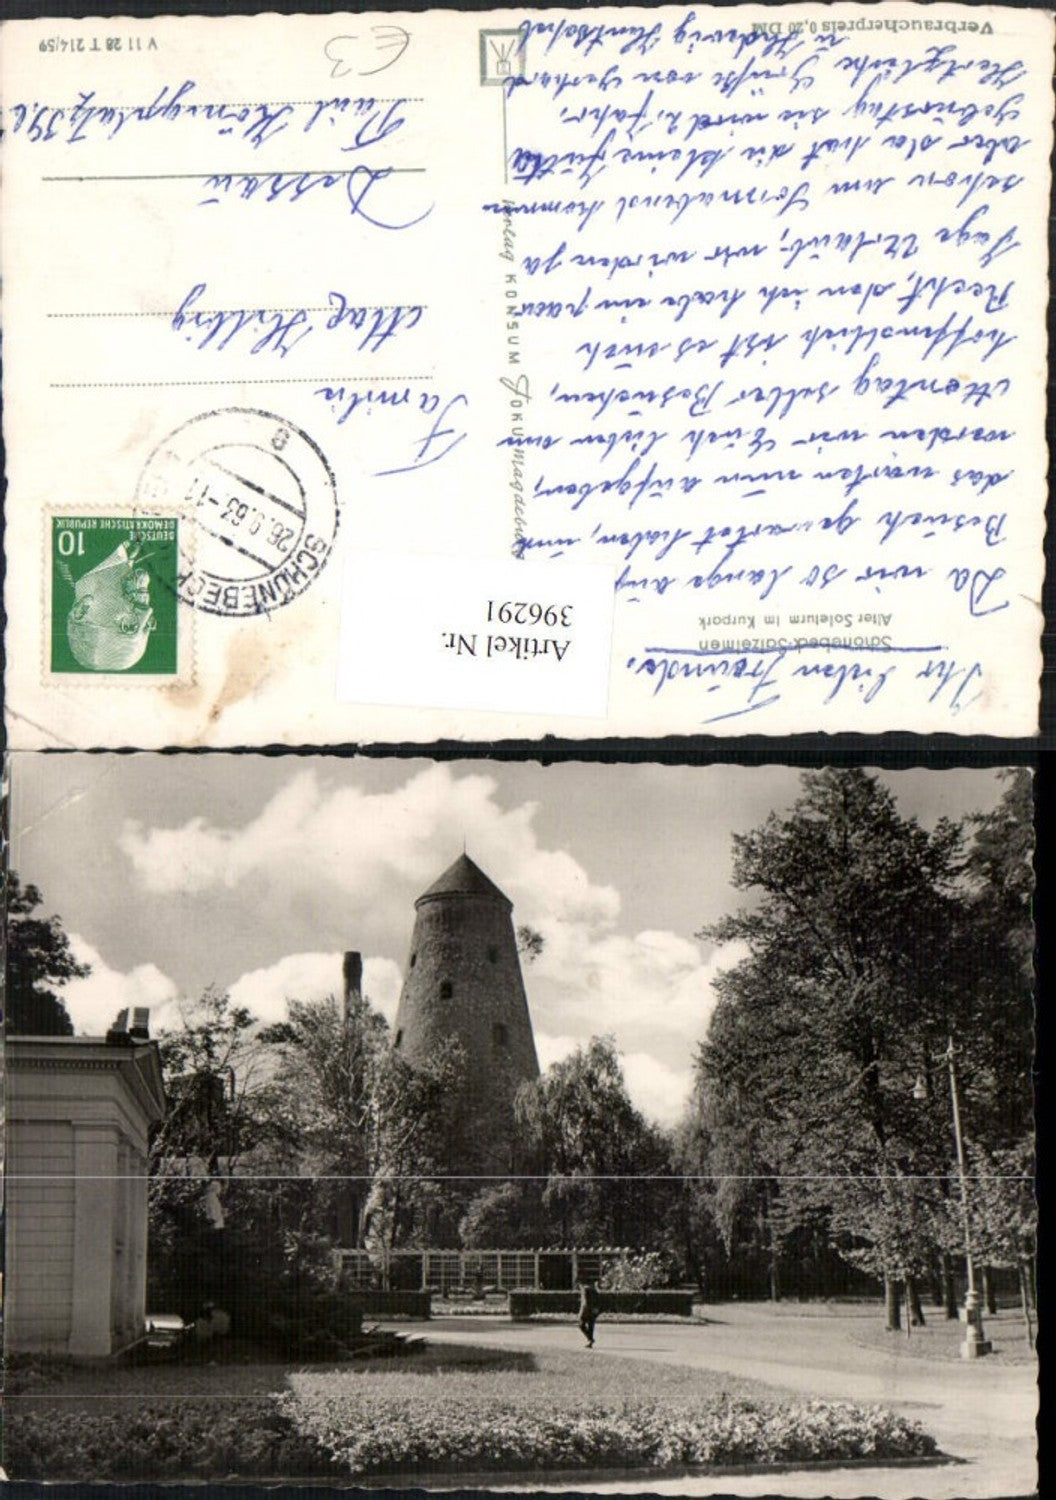 Ihr lieben Freunde.
Schönebeck-Salzelmen
Alter Soleturm im Kurpark
Da wir so lange auf
Besuch gewartet haben, und
das warten nun aufgeben,
werden wir Euch lieber am
Montag selber Besuchen,
hoffendlich ist es euch
Recht, den ich habe ein paar
Tage Urlaub, wir würden ja
schon am Sonnabend kommen
aber da hat die kleine Jutta
Geburstag sie wird 2. Jahr,
Hertzliche Grüße von Gerhard
u Hedwig
Verbraucherpreis 0,20 DM
Verlag KONSUM FOKUMA Magdeburg
Artikel Nr.
396291
DEUTSCHE
DEMOKRATISCHE REPUBLIK
10
SCHÖNEBECK
26.9.63-11
Familie
Max
Dessau
Paul Königplatz
V 11 28 T 214/59
E3